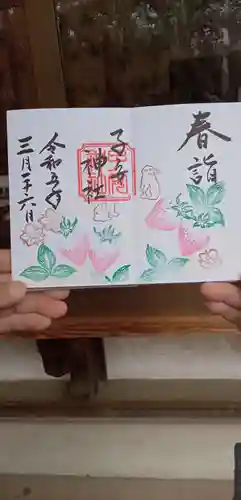 春詣
子安
神社
令和五年
三月二十六日